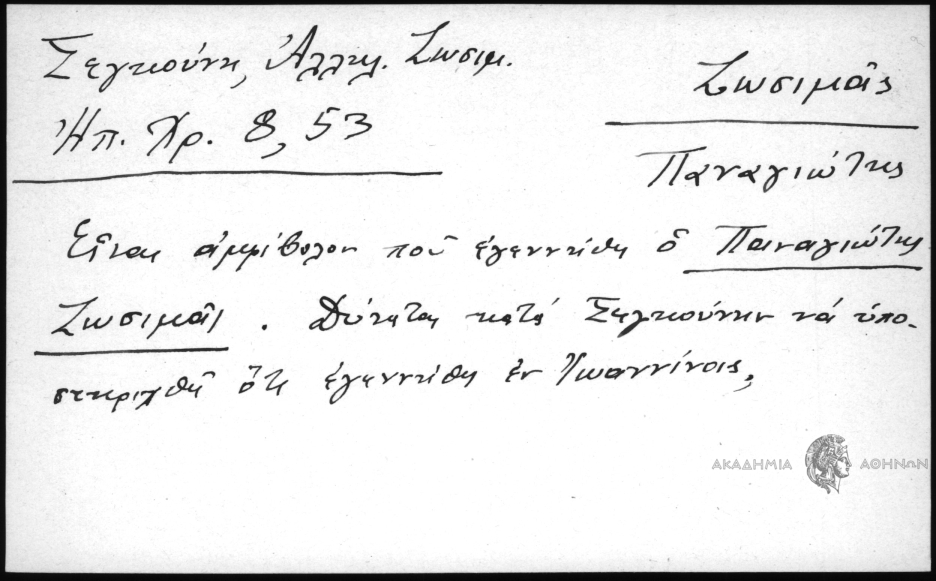 Σεγκούνη, Ἀλληλ. Ζωσιμ.
Ἠπ. Χρ. 8, 53
Ζωσιμᾶς
Παναγιώτης
Εἶναι ἀμφίβολον ποῦ ἐγεννήθη ὁ Παναγιώτης
Ζωσιμᾶς. Δύναται κατά Σεγκούνην νά ὑπο-
στηριχθῇ ὅτι ἐγεννήθη ἐν Ἰωαννίνοις,
ΑΚΑΔΗΜΙΑ ΑΘΗΝΩΝ